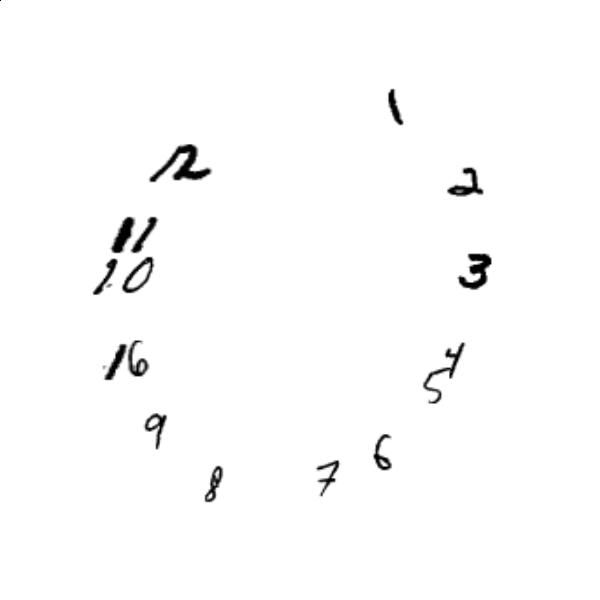 1
2
3
4
5
6
7
8
9
16
10
11
12